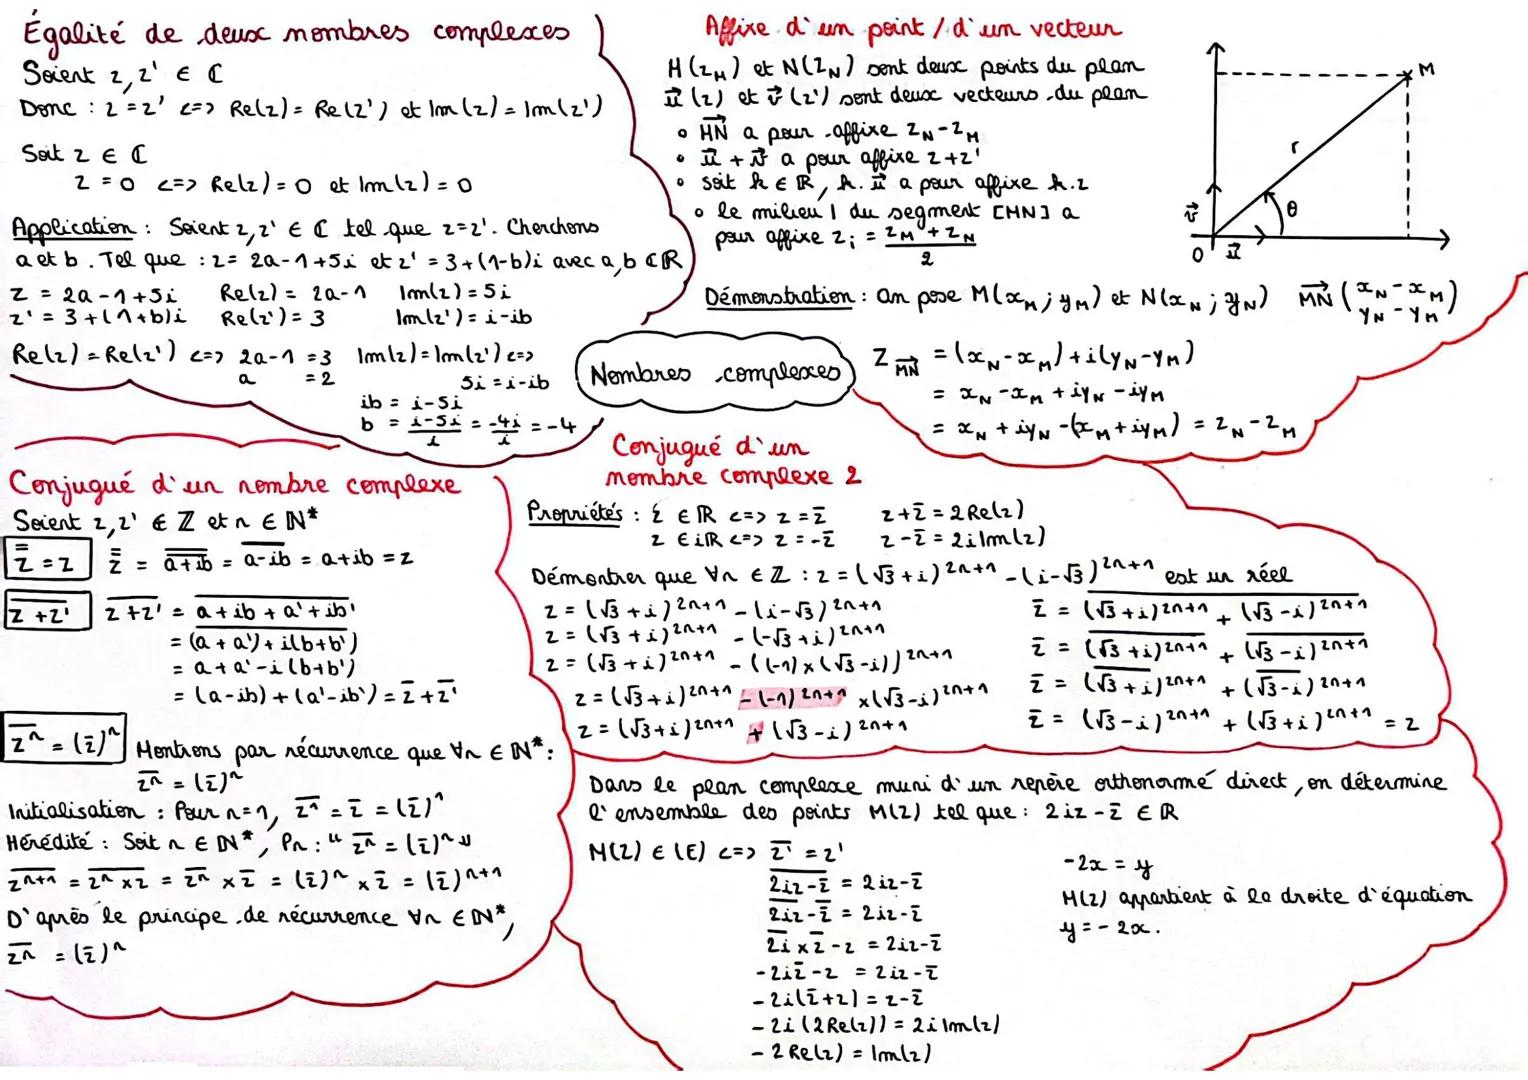 Égalité de deux nombres complexes
Soient z, z' ∈ ℂ
Donc : z = z' <=> Re(z) = Re(z') et Im(z) = Im(z')
Soit z ∈ ℂ
z = 0 <=> Re(z) = 0 et Im(z) = 0
Application : Soient z, z' ∈ ℂ tel que z = z'. Cherchons
a et b. Tel que : z = 2a-1+5i et z' = 3+(1-b)i avec a,b ⊂ ℝ
z = 2a-1+5i Re(z) = 2a-1 Im(z) = 5i
z' = 3+(1+b)i Re(z') = 3 Im(z') = i-ib
Re(z) = Re(z') <=> 2a-1 = 3 Im(z) = Im(z') <=>
a = 2 5i = i-ib
ib = i-5i
b = (i-5i)/i = -4i/i = -4
Affixe d'un point / d'un vecteur
M(z_M) et N(z_N) sont deux points du plan
u⃗(z) et v⃗(z') sont deux vecteurs du plan
• MN⃗ a pour affixe z_N - z_M
• u⃗ + v⃗ a pour affixe z+z'
• soit k ∈ ℝ, k.u⃗ a pour affixe k.z
• le milieu I du segment [MN] a
pour affixe z_i = (z_M + z_N)/2
M
r
θ
v⃗
O u⃗
Démonstration : On pose M(x_M ; y_M) et N(x_N ; y_N) MN⃗ (x_N - x_M
y_N - y_M)
Z_MN⃗ = (x_N - x_M) + i(y_N - y_M)
= x_N - x_M + iy_N - iy_M
= x_N + iy_N - (x_M + iy_M) = z_N - z_M
Nombres complexes
Conjugué d'un nombre complexe
Soient z, z' ∈ ℤ et n ∈ ℕ*
z̿ = z z̿ = a+ib (double barre) = \overline{a-ib} = a+ib = z
\overline{z+z'} \overline{z+z'} = \overline{a+ib+a'+ib'}
= \overline{(a+a')+i(b+b')}
= a+a'-i(b+b')
= (a-ib)+(a'-ib') = z̄+z̄'
\overline{z^n} = (z̄)^n Montrons par récurrence que ∀n ∈ ℕ* :
\overline{z^n} = (z̄)^n
Initialisation : Pour n=1, \overline{z^1} = z̄ = (z̄)^1
Hérédité : Soit n ∈ ℕ*, Pn : " \overline{z^n} = (z̄)^n "
\overline{z^{n+1}} = \overline{z^n × z} = \overline{z^n} × z̄ = (z̄)^n × z̄ = (z̄)^{n+1}
D'après le principe de récurrence ∀n ∈ ℕ*,
\overline{z^n} = (z̄)^n
Conjugué d'un
nombre complexe 2
Propriétés : z ∈ ℝ <=> z = z̄ z+z̄ = 2Re(z)
z ∈ iℝ <=> z = -z̄ z-z̄ = 2iIm(z)
Démontrer que ∀n ∈ ℤ : z = (√3+i)^{2n+1} - (i-√3)^{2n+1} est un réel
z = (√3+i)^{2n+1} - (i-√3)^{2n+1}
z = (√3+i)^{2n+1} - (-√3+i)^{2n+1}
z = (√3+i)^{2n+1} - ((-1)×(√3-i))^{2n+1}
z = (√3+i)^{2n+1} - (-1)^{2n+1} ×(√3-i)^{2n+1}
z = (√3+i)^{2n+1} + (√3-i)^{2n+1}
z̄ = \overline{(√3+i)^{2n+1} + (√3-i)^{2n+1}}
z̄ = \overline{(√3+i)^{2n+1}} + \overline{(√3-i)^{2n+1}}
z̄ = (\overline{√3+i})^{2n+1} + (\overline{√3-i})^{2n+1}
z̄ = (√3-i)^{2n+1} + (√3+i)^{2n+1} = z
Dans le plan complexe muni d'un repère orthonormé direct, on détermine
l'ensemble des points M(z) tel que : 2iz-z̄ ∈ ℝ
M(z) ∈ (E) <=> z̄' = z'
\overline{2iz-z̄} = 2iz-z̄
\overline{2iz}-\overline{z̄} = 2iz-z̄
\overline{2i}×z̄-z = 2iz-z̄
-2iz̄-z = 2iz-z̄
-2i(z̄+z) = z-z̄
-2i(2Re(z)) = 2iIm(z)
-2Re(z) = Im(z)
-2x = y
M(z) appartient à la droite d'équation
y = -2x.